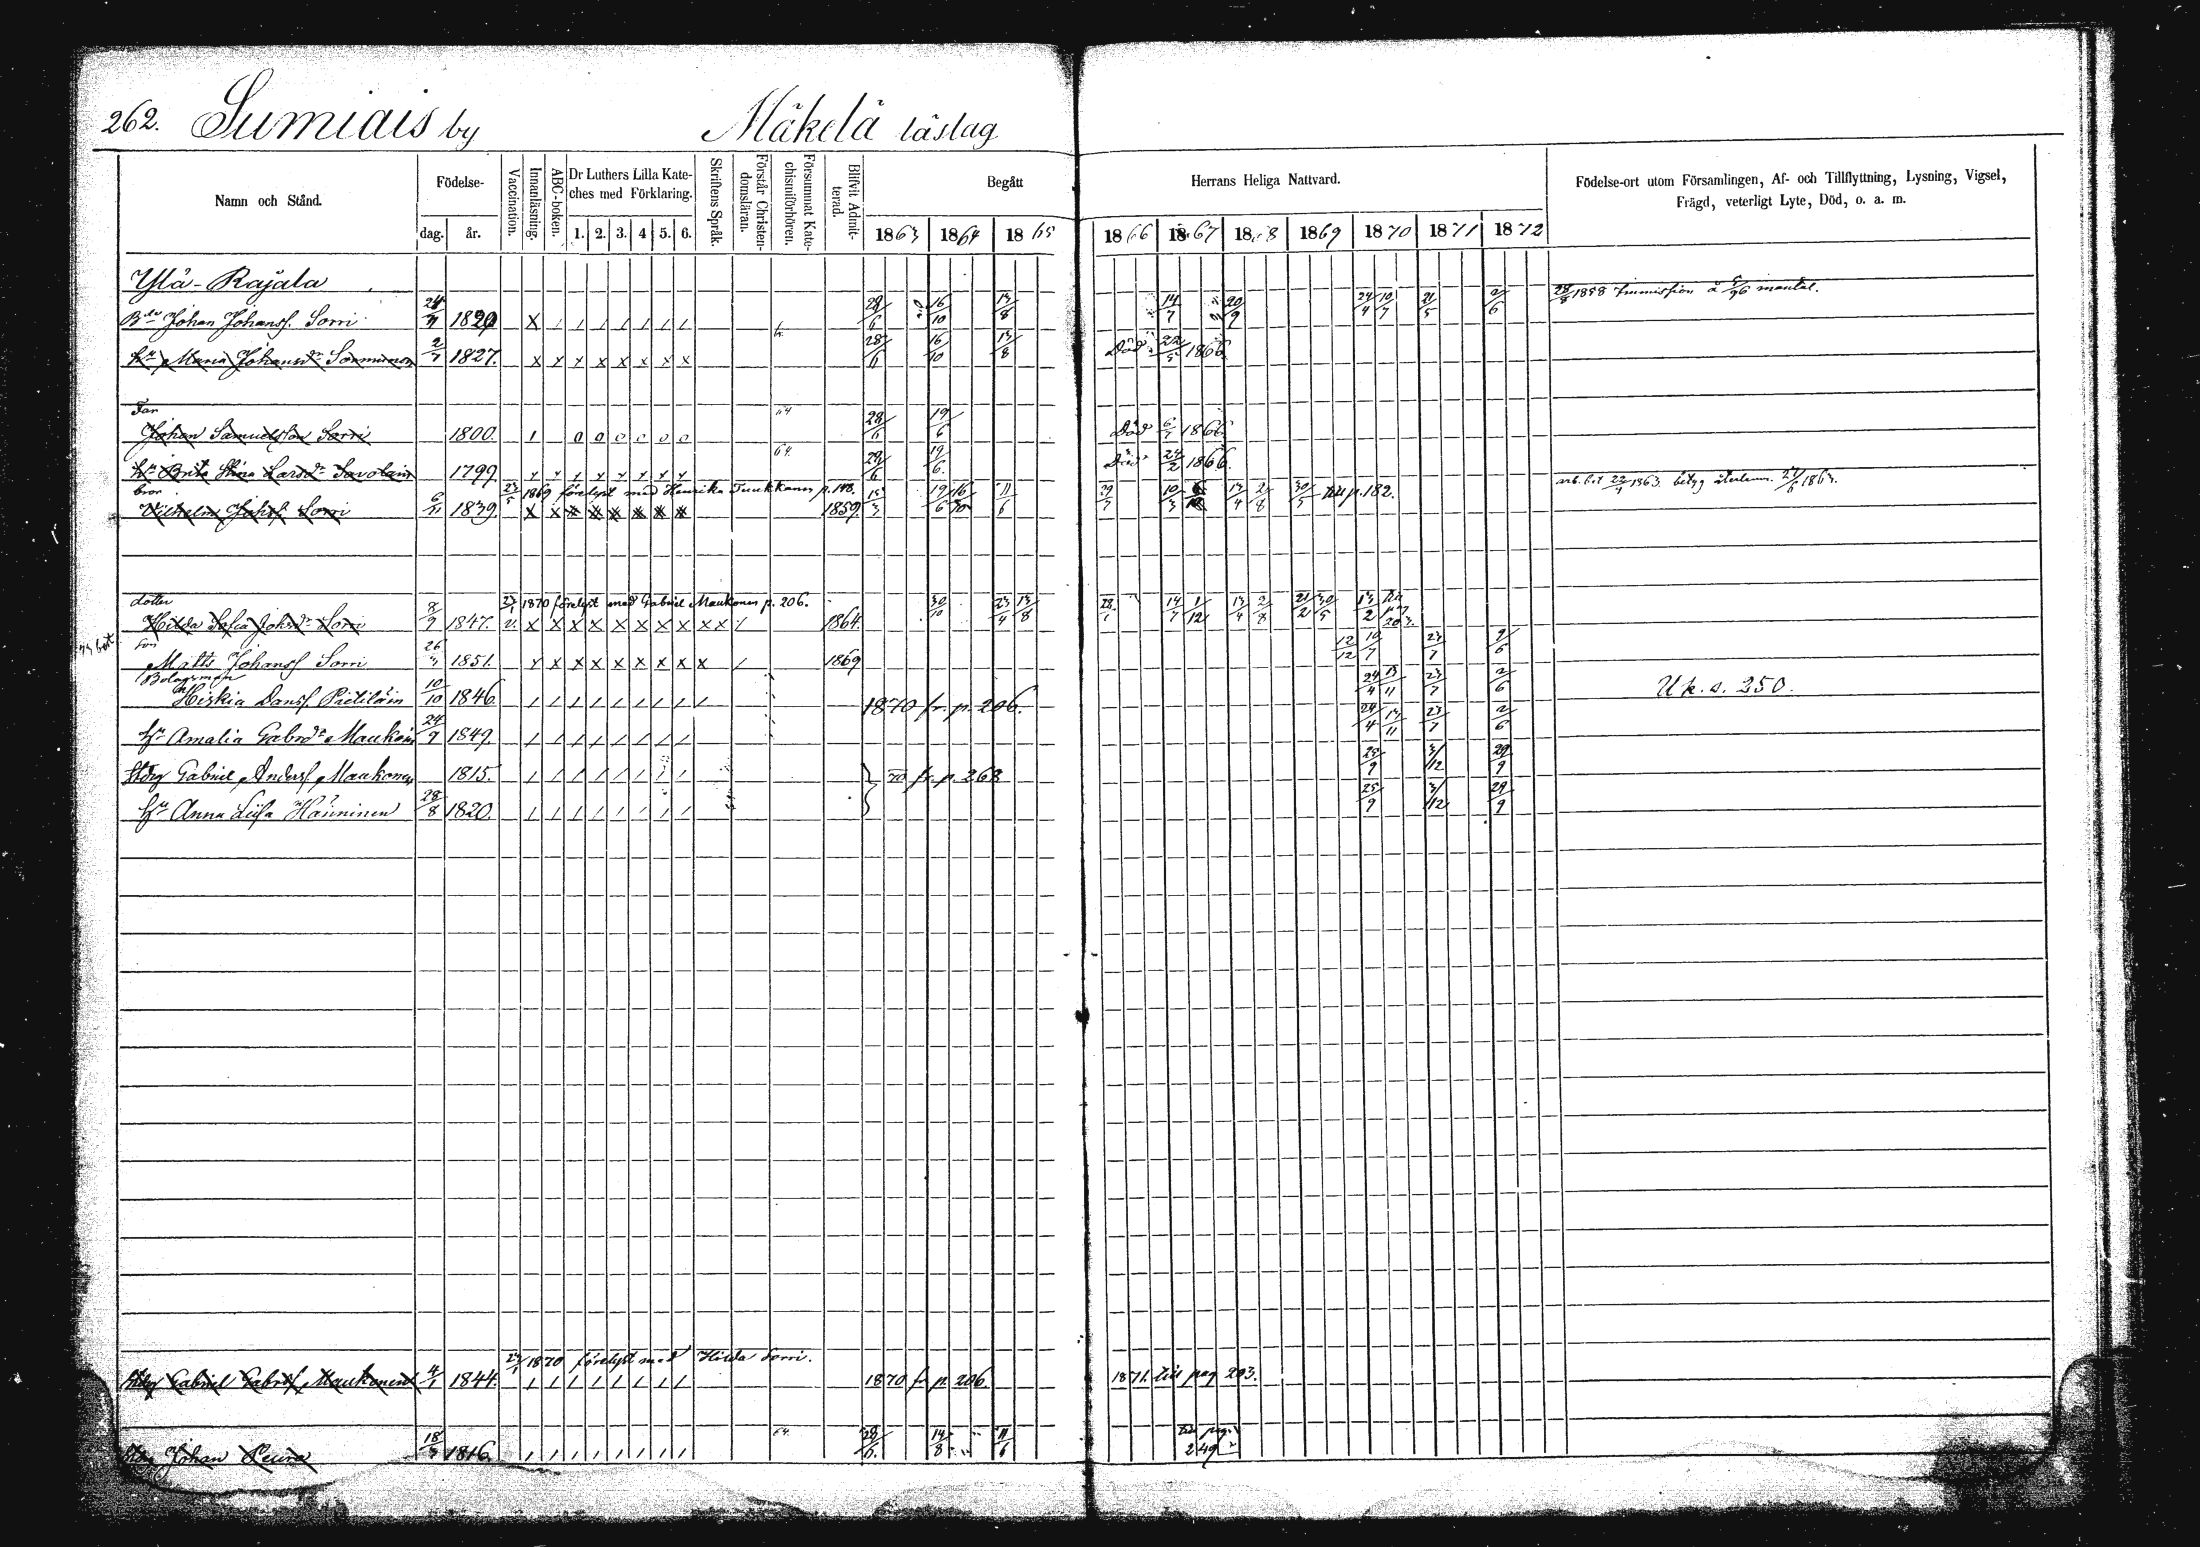 262. Sumiais by Mäkelä läslag
Namn och Stånd. Födelse- dag. år. Vaccination. Innanläsning. ABC-boken. Dr Luthers Lilla Kateches med Förklaring. 1. 2. 3. 4 5. 6. Skriftens Språk. Förstår Christendomsläran. Försummat Katechismiförhören. Blifvit Admitterad. Begått Herrans Heliga Nattvard. Födelse-ort utom Församlingen, Af- och Tillflyttning, Lysning, Vigsel, Frägd, veterligt Lyte, Död, o. a. m.
1863 1864 1865 1866 1867 1868 1869 1870 1871 1872
Ylä-Rajala
28/8 1858 Immission å 5/96 mantal.
Johan Johanss. Sorri 1820 X / / / / / / / 28/6 16/10 13/8 14/7 20/9 24/4 10/7 21/5 2/6
Hu Maria Johansdr 2/7 1827. x x x x x x x x 28/6 16/10 13/8 Död 22/5 1866
Far
Johan Samuelsson Sorri 1800. 1 0 0 0 0 0 0 64 28/6 19/6 Död 1866
Hu Brita Stina Larsdr Savolain 1799 64 28/6 19/6. Död 24/2 1866.
bror 23/5 1869 förelyst med Henrika Tuukkanen p. 148.
arb. bet 22/4 1863. betyg återlemn. 1863.
Vilhelm Johss. Sorri 1839. x x 1859. 19/6 11/6 29/7 10/3 13/4 2/8 30/5 till p. 182.
dotter 23/1 1870 förelyst med Gabriel Maukonen p. 206.
Hilda Sofia Johsdr Sorri 8/9 1847. v. x x x x x x x x x x / 1864. 30/10 23/4 13/8 14/7 1/12 13/4 2/8 21/2 30/5 13/2
son
Matts Johanss. Sorri 26/3 1851. x x x x x x x x x / 1869 12/12 10/7 23/7 2/6
Bolagsman
Hiskia Danss. Pietiläin 10/10 1846. / / / / / / / / / 1870 fr. p. 206. 24/4 13/11 23/7 2/6 U k. s. 250.
Hu Amalia Gabrdr Maukoin 24/9 1849 / / / / / / / / 24/4 13/11 23/7 2/6
Gabriel Anderss. Maukonen 1815. / / / / / / / / 70 fr. p. 268 25/9 3/12 29/9
Hu Anna Liisa Hänninen 28/8 1820. / / / / / / / / 25/9 3/12 29/9
23/1 1870 förelyst med Hilda Sorri.
Gabriel Gabrss. Maukonen 4/1 1844. / / / / / / / / 1870 fr p. 206. 1871. till pag 203.
Johan Leura 18/3 1816. / / / / / / / / 64. 28/6. 14/8 11/6 till pag. 249